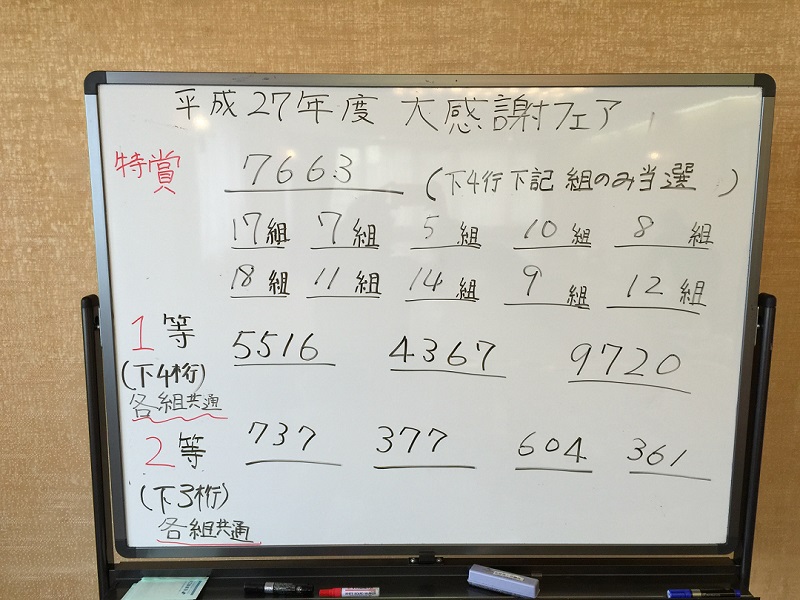 平成27年度 大感謝フェア
特賞 7663 (下4行下記 組のみ当選 )
17組 7組 5組 10組 8組
18組 11組 14組 9組 12組
1等 5516 4367 9720
(下4桁)
各組共通
2等 737 377 604 361
(下3桁)
各組共通